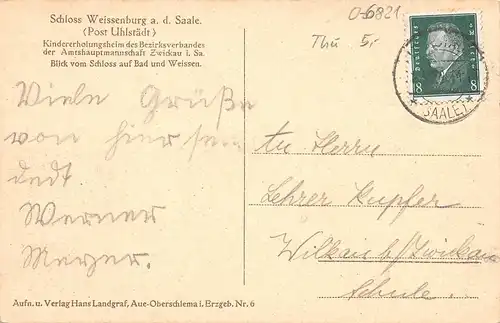 Schloss Weissenburg a. d. Saale.
(Post Uhlstädt)
Kindererholungsheim des Bezirksverbandes
der Amtshauptmannschaft Zwickau i. Sa.
Blick vom Schloss auf Bad und Weissen.
O-6821
Thü 5,-
Deutsches Reich
8 8
(SAALE)
Viele Grüße
von hier sen
dedt
Werner
Meyer.
An Herrn
Lehrer Kupfer
Wilkau b/Zwickau
Schule.
Aufn. u. Verlag Hans Landgraf, Aue-Oberschlema i. Erzgeb. Nr. 6